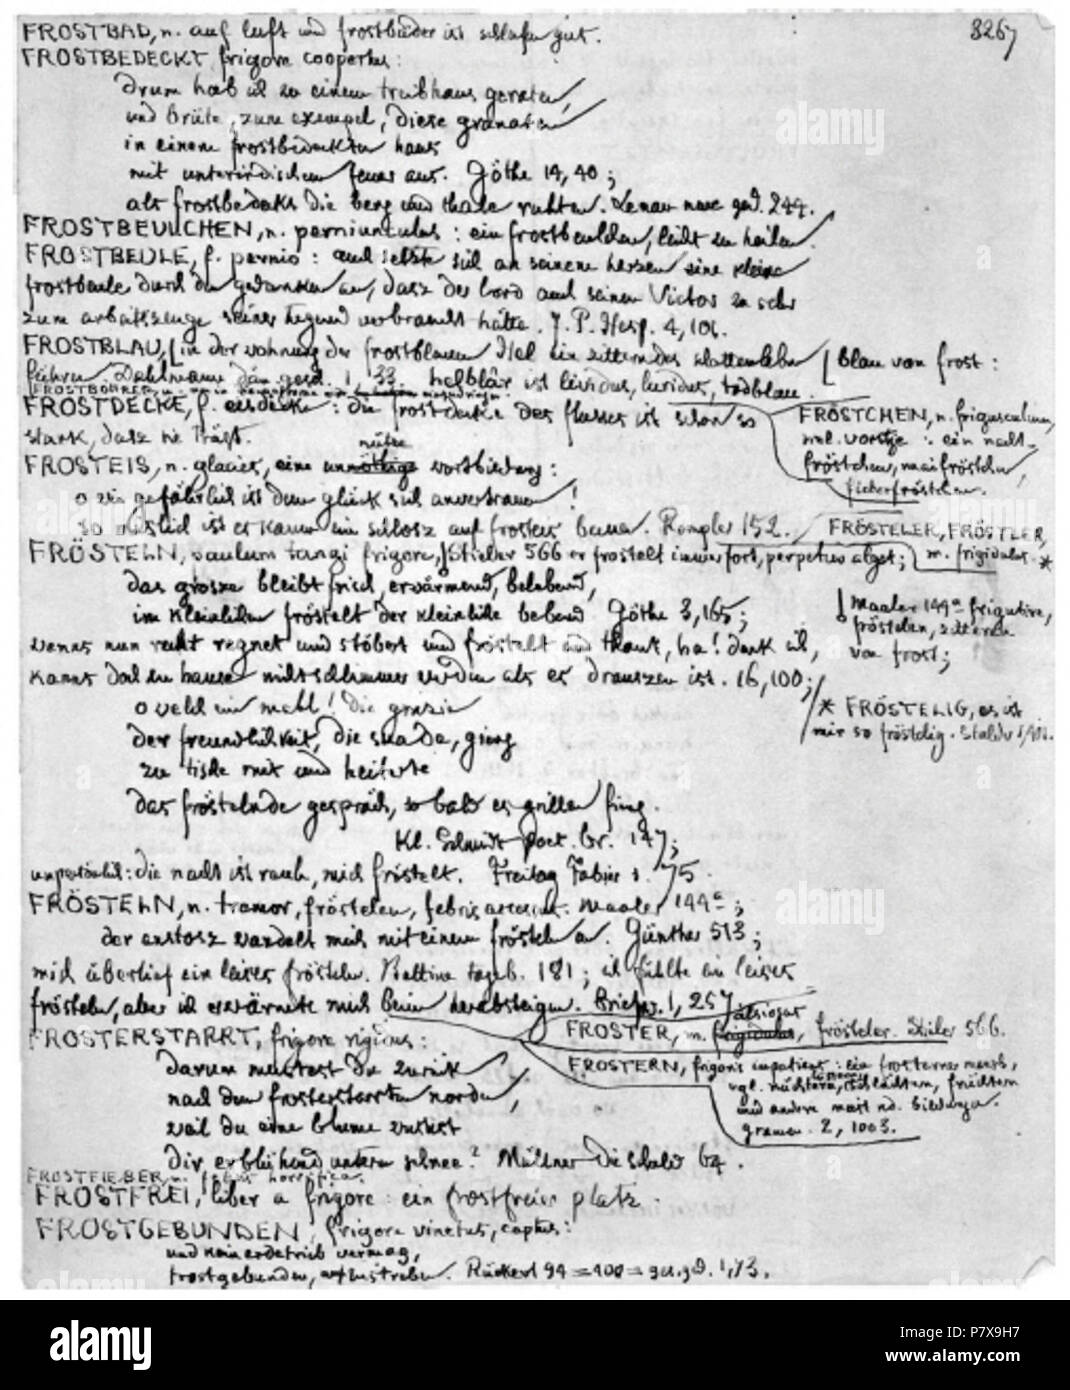 3267
FROSTBAD, n. auf luft und frostbäder ist schlafen gut.
FROSTBEDECKT frigore coopertus:
drum hab ich in einem treibhaus gerathen,
und brüte, zum exempel, diese granaten
in einem frostbedeckten haus
mit unterirdischem feuer aus. Göthe 14, 40;
als frostbedeckt die berg und thale ruhten. Lenau neue ged. 244.
FROSTBEULCHEN, n. perniunculus: ein frostbeulchen, leicht zu heilen.
FROSTBEULE, f. pernio: und setzte sich an seinem herzen eine kleine
frostbeule durch den gedanken an, dasz der lord auch seinen Victor zu sehr
zum arbeitszeuge seiner tugend verbraucht hätte. J. P. Hesp. 4, 101.
FROSTBLAU, blau von frost:
in der wohnung der frostblauen Hel ein zitterndes schattenleben
führen. Dahlmann dän. gesch. 1, 33. helblâr ist lividus, luridus, todblau.
FROSTBOHRER, m.
FROSTDECKE, f. eisdecke: die frostdecke des flusses ist schon so
stark, dasz sie trägt.
FRÖSTCHEN, n. frigusculum,
ein nacht-
fröstchen, maifröstchen,
fieberfröstchen.
FROSTEIS, n. glacies, eine unnütze unnöthige wortbildung:
o wie gefährlich ist dem glück sich anvertrauen!
so mislich ist es kaum ein schlosz auf frosteis bauen. Rompler 152.
FRÖSTELER, FRÖSTLER,
m. frigidulus. *
FRÖSTELN, paulum tangi frigore, Stieler 566 er fröstelt immerfort, perpetuo alget;
Maaler 144a frigutire,
frösteln, zitteren
von frost;
das grosze bleibt frisch, erwärmend, belebend,
im kleinlichen fröstelt der kleinliche bebend Göthe 3, 165;
wenns nun recht regnet und stöbert und fröstelt und thaut, ha! denk ich,
kanns doch zu hause nicht schlimmer werden als es drauszen ist. 16, 100;
* FRÖSTELIG, es ist
mir so fröstelig. Stalder 1, 401.
o welch ein mahl! die grazie
der freundlichkeit, die suada, gieng
zu tische mit und heiterte
das fröstelnde gespräch, so bald es grillen fing.
Kl. Schmidt poet. br. 147;
unpersönlich: die nacht ist rauh, mich fröstelt. Freitag Fabier s. 75.
FRÖSTELN, n. tremor, fröstelen, febris accessus. Maaler 144c;
der anstosz wandelt mich mit einem frösteln an. Günther 513;
mich überlief ein leises frösteln. Bettine tageb. 181; ich fühlte ein leises
frösteln, aber ich erwärmte mich beim herabsteigen. Briefw. 1, 257.
FROSTER, m. alsiosus frigidulus, frösteler. Stieler 566.
FROSTERN, frigoris impatiens: ein frosterner mensch,
vgl. nüchtern, schüchtern,
und andere mehr nd. bildungen.
gramm. 2, 1003.
FROSTERSTARRT, frigore rigidus:
darum muszest du zurück
nach dem frosterstarrten norden,
weil du eine blume wurdest
dir erblühend unterm schnee? Müllner die schuld 64.
FROSTFIEBER, n. febris horrifica.
FROSTFREI, liber a frigore: ein frostfreier platz.
FROSTGEBUNDEN, frigore vinctus, captus:
und kein erdetrieb vermag,
frostgebunden, aufzustreben. Rückert 94 = 400 = ges. ged. 1, 73.
alamy
alamy
Image ID: P7X9H7
www.alamy.com